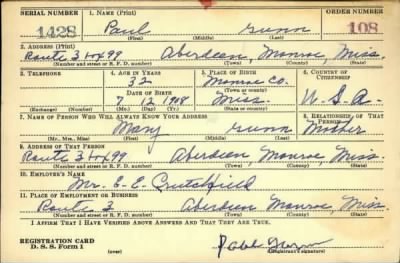 SERIAL NUMBER 1. NAME (Print) ORDER NUMBER
1428 Paul Gunn 108
(First) (Middle) (Last)
2. ADDRESS (Print)
Route 3 Box 99 Aberdeen, Monroe, Miss.
(Number and street or R. F. D. number) (Town) (County) (State)
3. TELEPHONE 4. AGE IN YEARS 5. PLACE OF BIRTH 6. COUNTRY OF CITIZENSHIP
32 Monroe Co.
(Town or county)
DATE OF BIRTH
7 12 1908 Miss. U. S. A.
(Exchange) (Number) (Mo.) (Day) (Yr.) (State or country)
7. NAME OF PERSON WHO WILL ALWAYS KNOW YOUR ADDRESS 8. RELATIONSHIP OF THAT PERSON
Mary Gunn Mother
(Mr., Mrs., Miss) (First) (Middle) (Last)
9. ADDRESS OF THAT PERSON
Route 3 Box 99 Aberdeen, Monroe, Miss.
(Number and street or R. F. D. number) (Town) (County) (State)
10. EMPLOYER'S NAME
Mr. E. E. Crutchfield
11. PLACE OF EMPLOYMENT OR BUSINESS
Route 3 Aberdeen Monroe, Miss
(Number and street or R. F. D. number) (Town) (County) (State)
I AFFIRM THAT I HAVE VERIFIED ABOVE ANSWERS AND THAT THEY ARE TRUE.
REGISTRATION CARD
D. S. S. Form 1 (over) (Registrant's signature)